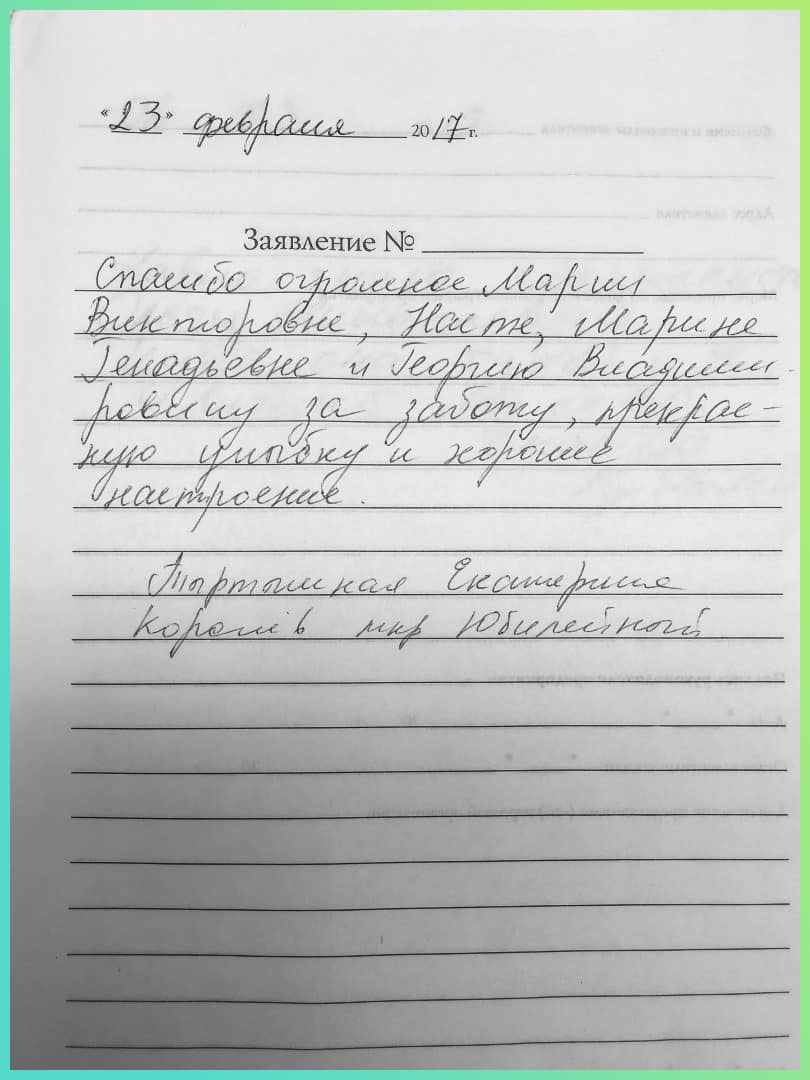 «23» февраля 2017 г.
Заявление №
Спасибо огромное Марии
Викторовне, Насте, Марине
Генадьевне и Георгию Владими-
ровичу за заботу, прекрас-
ную улыбку и хорошее
настроение.
Екатерина
Королёв мкр Юбилейный